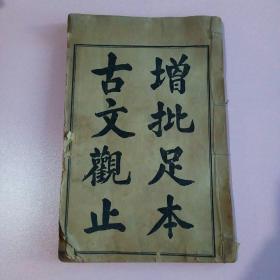 增批足本
古文觀止